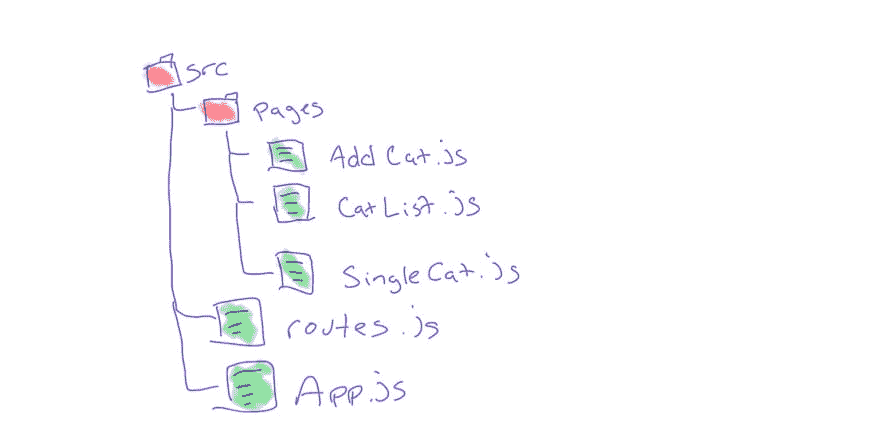 src
pages
AddCat.js
CatList.js
SingleCat.js
routes.js
App.js